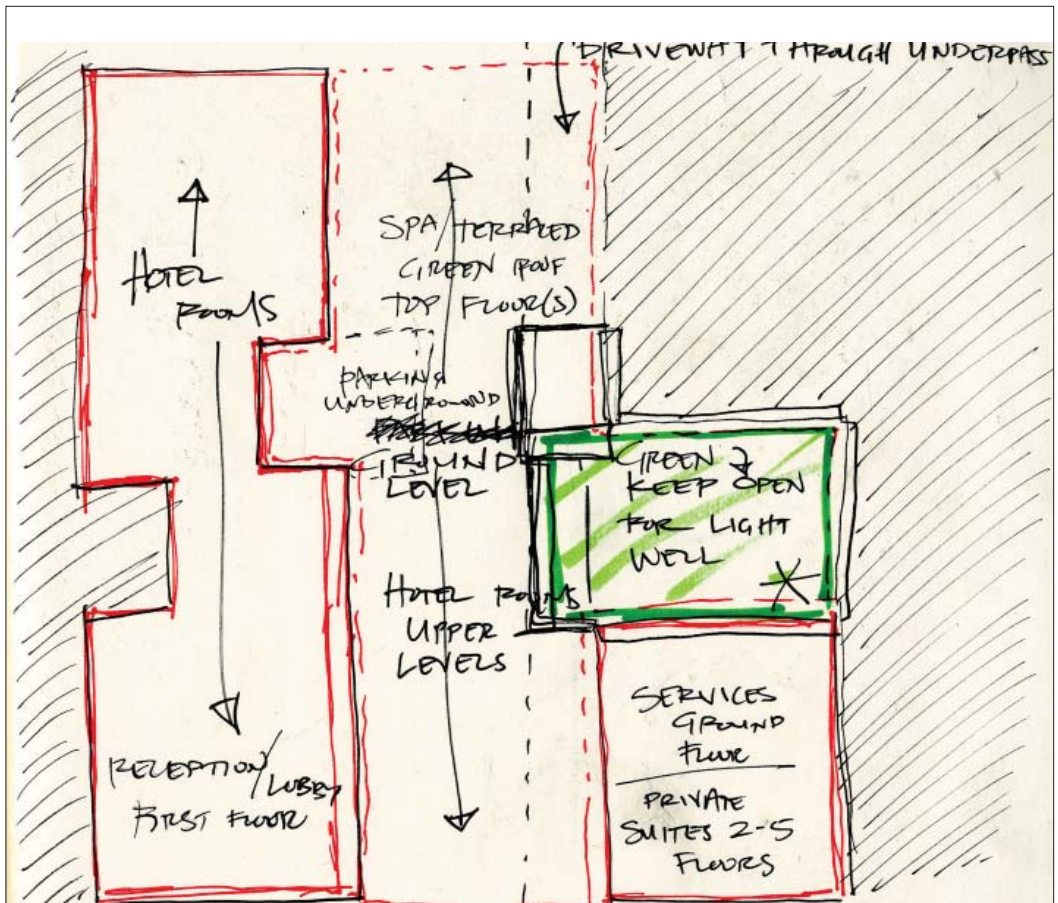 DRIVEWAY THROUGH UNDERPASS
HOTEL
ROOMS
SPA/TERRACED
GREEN ROOF
TOP FLOOR(S)
PARKING
UNDERGROUND
GROUND
LEVEL
GREEN
KEEP OPEN
FOR LIGHT
WELL
HOTEL ROOMS
UPPER
LEVELS
RECEPTION/LOBBY
FIRST FLOOR
SERVICES
GROUND
FLOOR
PRIVATE
SUITES 2-5
FLOORS